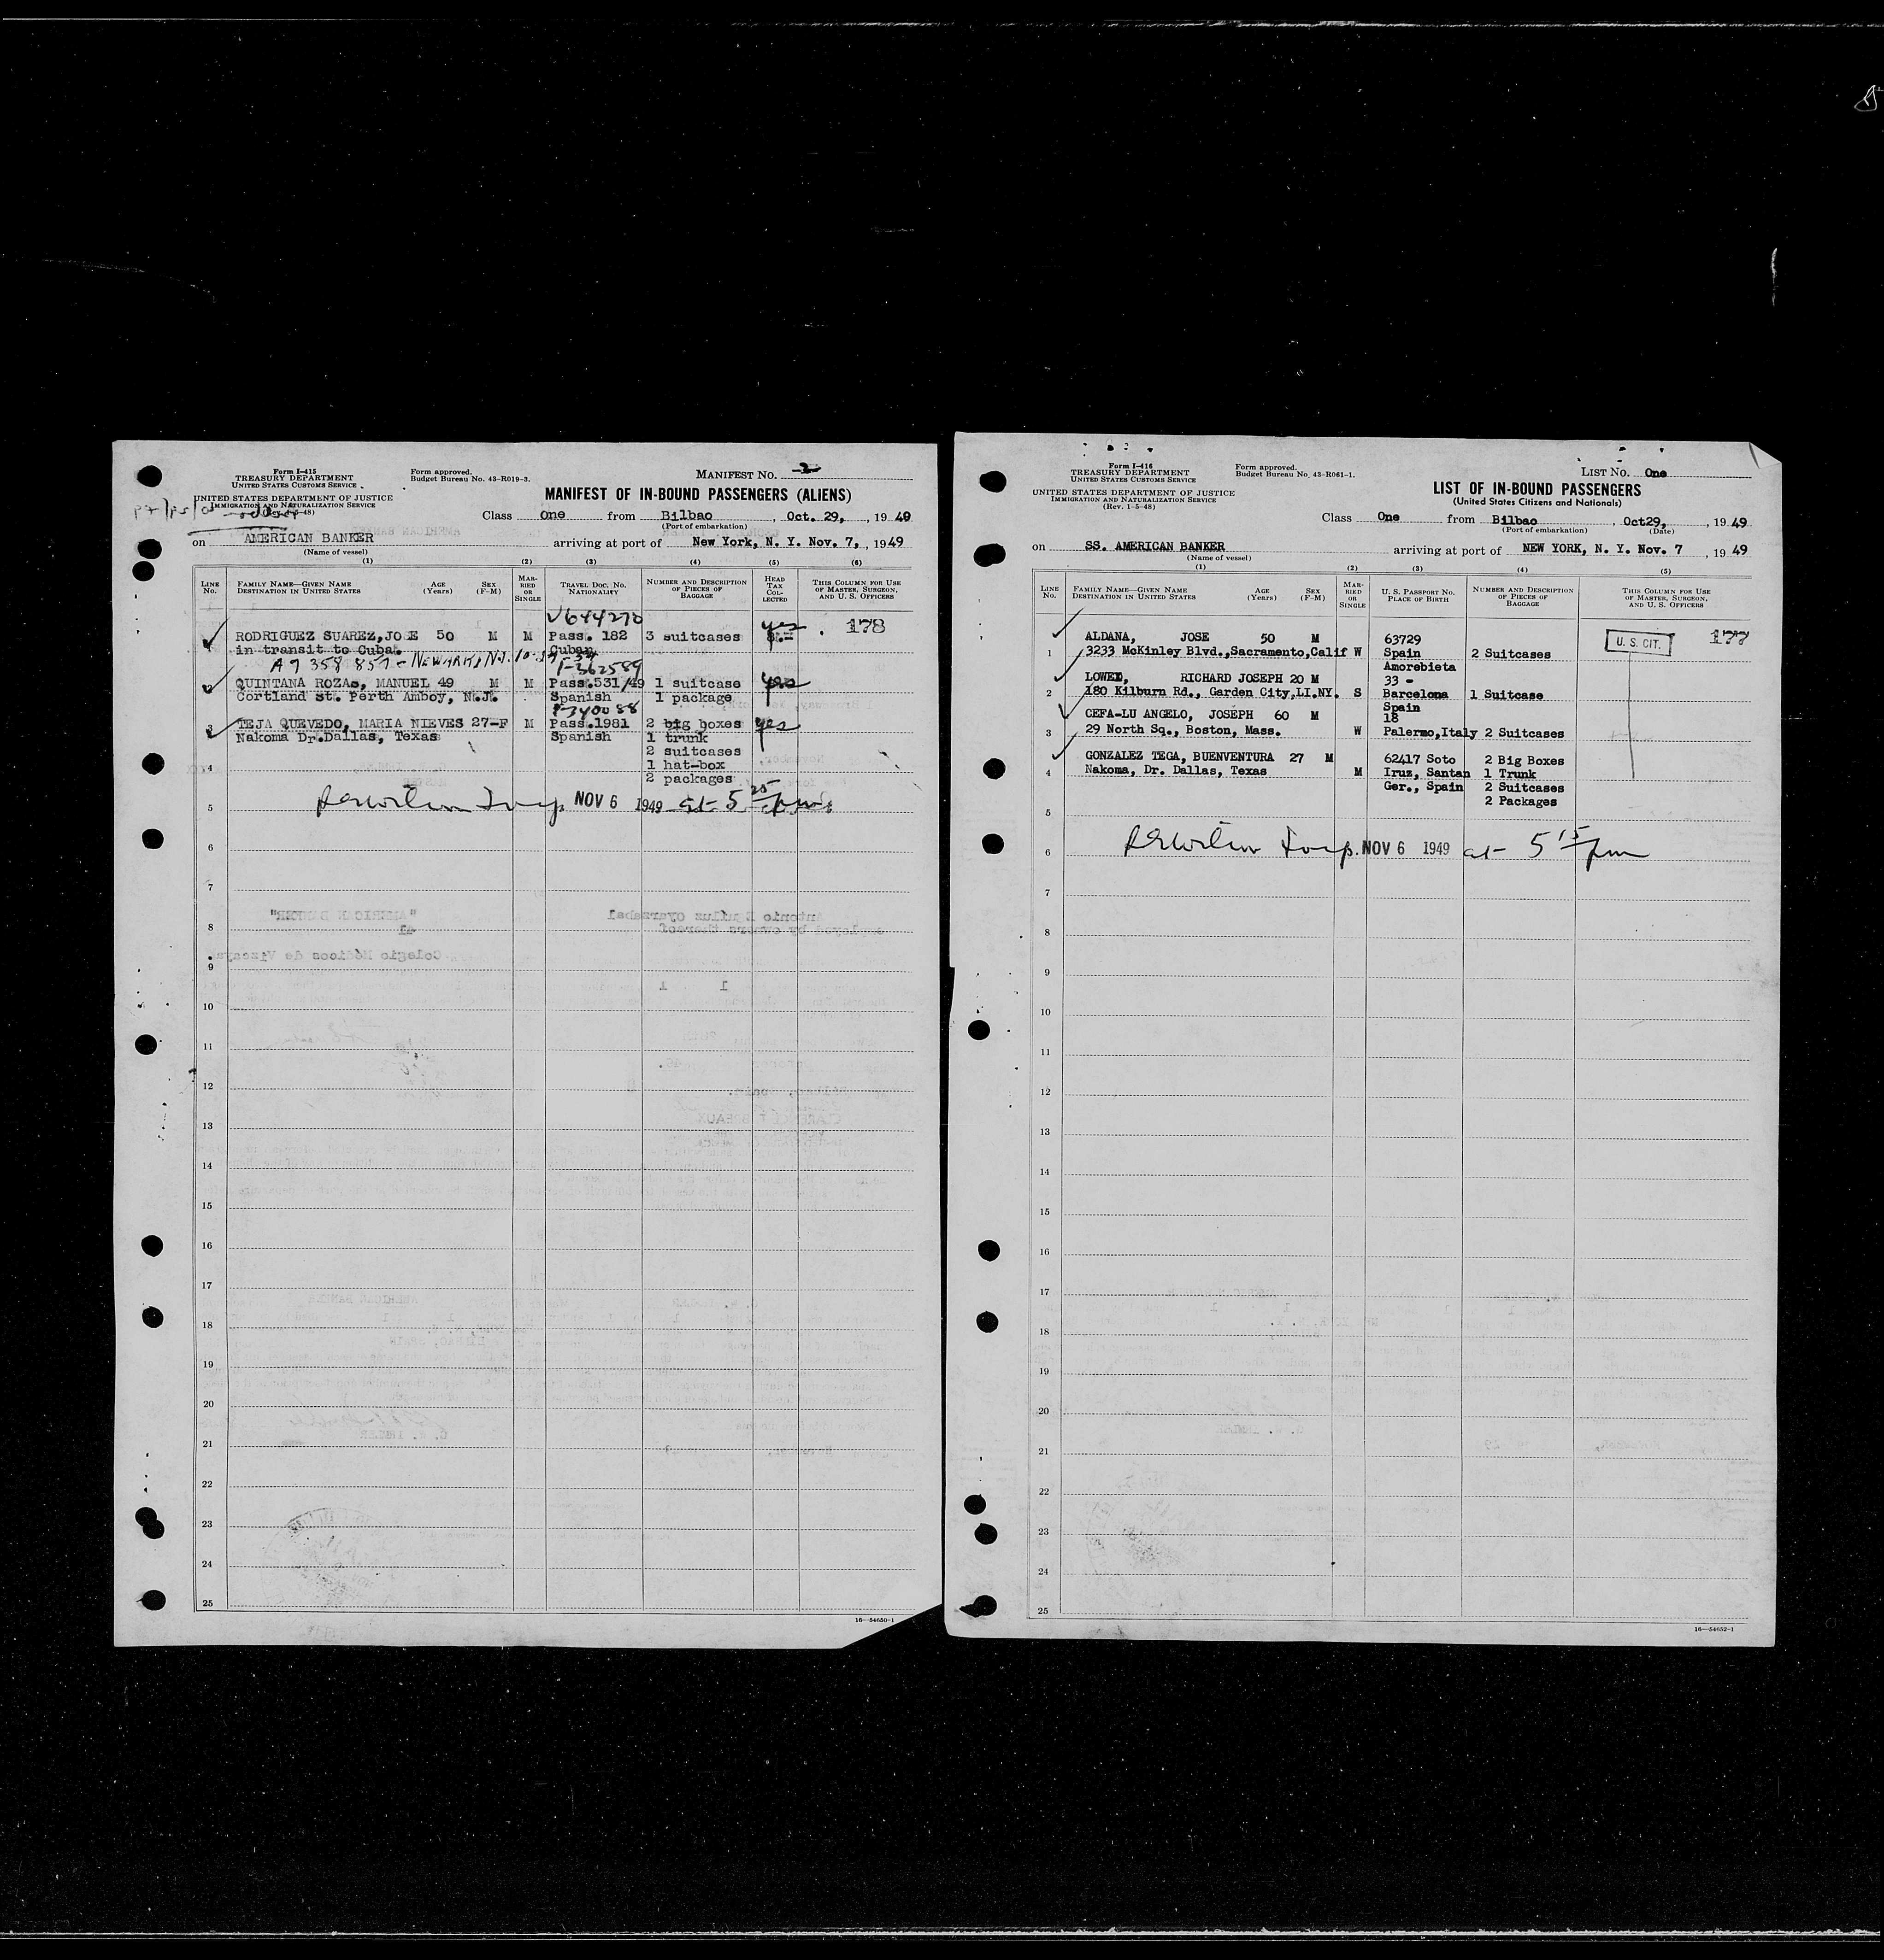 Form I-415
TREASURY DEPARTMENT
UNITED STATES CUSTOMS SERVICE
UNITED STATES DEPARTMENT OF JUSTICE
IMMIGRATION AND NATURALIZATION SERVICE
Form approved.
Budget Bureau No. 43-R019-3.
MANIFEST NO. 2
MANIFEST OF IN-BOUND PASSENGERS (ALIENS)
Class One from Bilbao, Oct. 29, , 19 49
(Port of embarkation)
on AMERICAN BANKER arriving at port of New York, N. Y. Nov. 7, , 19 49
(Name of vessel)
(1) (2) (3) (4) (5) (6)
LINE No. FAMILY NAME—GIVEN NAME DESTINATION IN UNITED STATES AGE (Years) SEX (F-M) MARRIED OR SINGLE TRAVEL DOC. NO. NATIONALITY NUMBER AND DESCRIPTION OF PIECES OF BAGGAGE HEAD TAX COLLECTED THIS COLUMN FOR USE OF MASTER, SURGEON, AND U. S. OFFICERS
V644270
RODRIGUEZ SUAREZ, JOSE 50 M M Pass. 182 3 suitcases yes 178
in transit to Cuba. Cuban
A7 358 857 - NEWARK, N.J.
QUINTANA ROZAS, MANUEL 49 M M Pass.531/49 1 suitcase yes
Cortland st. Perth Amboy, N.J. Spanish 1 package
P-340088
3 TEJA QUEVEDO, MARIA NIEVES 27-F M Pass.1981 2 big boxes yes
Nakoma Dr.Dallas, Texas Spanish 1 trunk
2 suitcases
4 1 hat-box
2 packages
5 NOV 6 1949 at 5 25 pm
6
7
8
9
10
11
12
13
14
15
16
17
18
19
20
21
22
23
24
25
16—54650-1
Form I-416
TREASURY DEPARTMENT
UNITED STATES CUSTOMS SERVICE
UNITED STATES DEPARTMENT OF JUSTICE
IMMIGRATION AND NATURALIZATION SERVICE
(Rev. 1-5-48)
Form approved.
Budget Bureau No. 43-R061-1.
LIST NO. One
LIST OF IN-BOUND PASSENGERS
(United States Citizens and Nationals)
Class One from Bilbao , Oct29, , 19 49
(Port of embarkation) (Date)
on SS. AMERICAN BANKER arriving at port of NEW YORK, N. Y. Nov. 7 , 19 49
(Name of vessel)
(1) (2) (3) (4) (5)
LINE No. FAMILY NAME—GIVEN NAME DESTINATION IN UNITED STATES AGE (Years) SEX (F-M) MARRIED OR SINGLE U. S. PASSPORT NO. PLACE OF BIRTH NUMBER AND DESCRIPTION OF PIECES OF BAGGAGE THIS COLUMN FOR USE OF MASTER, SURGEON, AND U. S. OFFICERS
ALDANA, JOSE 50 M 63729 U. S. CIT. 177
1 3233 McKinley Blvd.,Sacramento,Calif W Spain 2 Suitcases
Amorebieta
RICHARD JOSEPH 20 M 33 -
2 180 Kilburn Rd., Garden City,LI.NY. S Barcelona 1 Suitcase
Spain
CEFA-LU ANGELO, JOSEPH 60 M 18
3 29 North Sq., Boston, Mass. W Palermo,Italy 2 Suitcases
GONZALEZ TEGA, BUENVENTURA 27 M 62417 Soto 2 Big Boxes
4 Nakoma, Dr. Dallas, Texas M Iruz, Santan 1 Trunk
Ger., Spain 2 Suitcases
2 Packages
5
6 NOV 6 1949 at 5 15 pm
7
8
9
10
11
12
13
14
15
16
17
18
19
20
21
22
23
24
25
16—54652-1